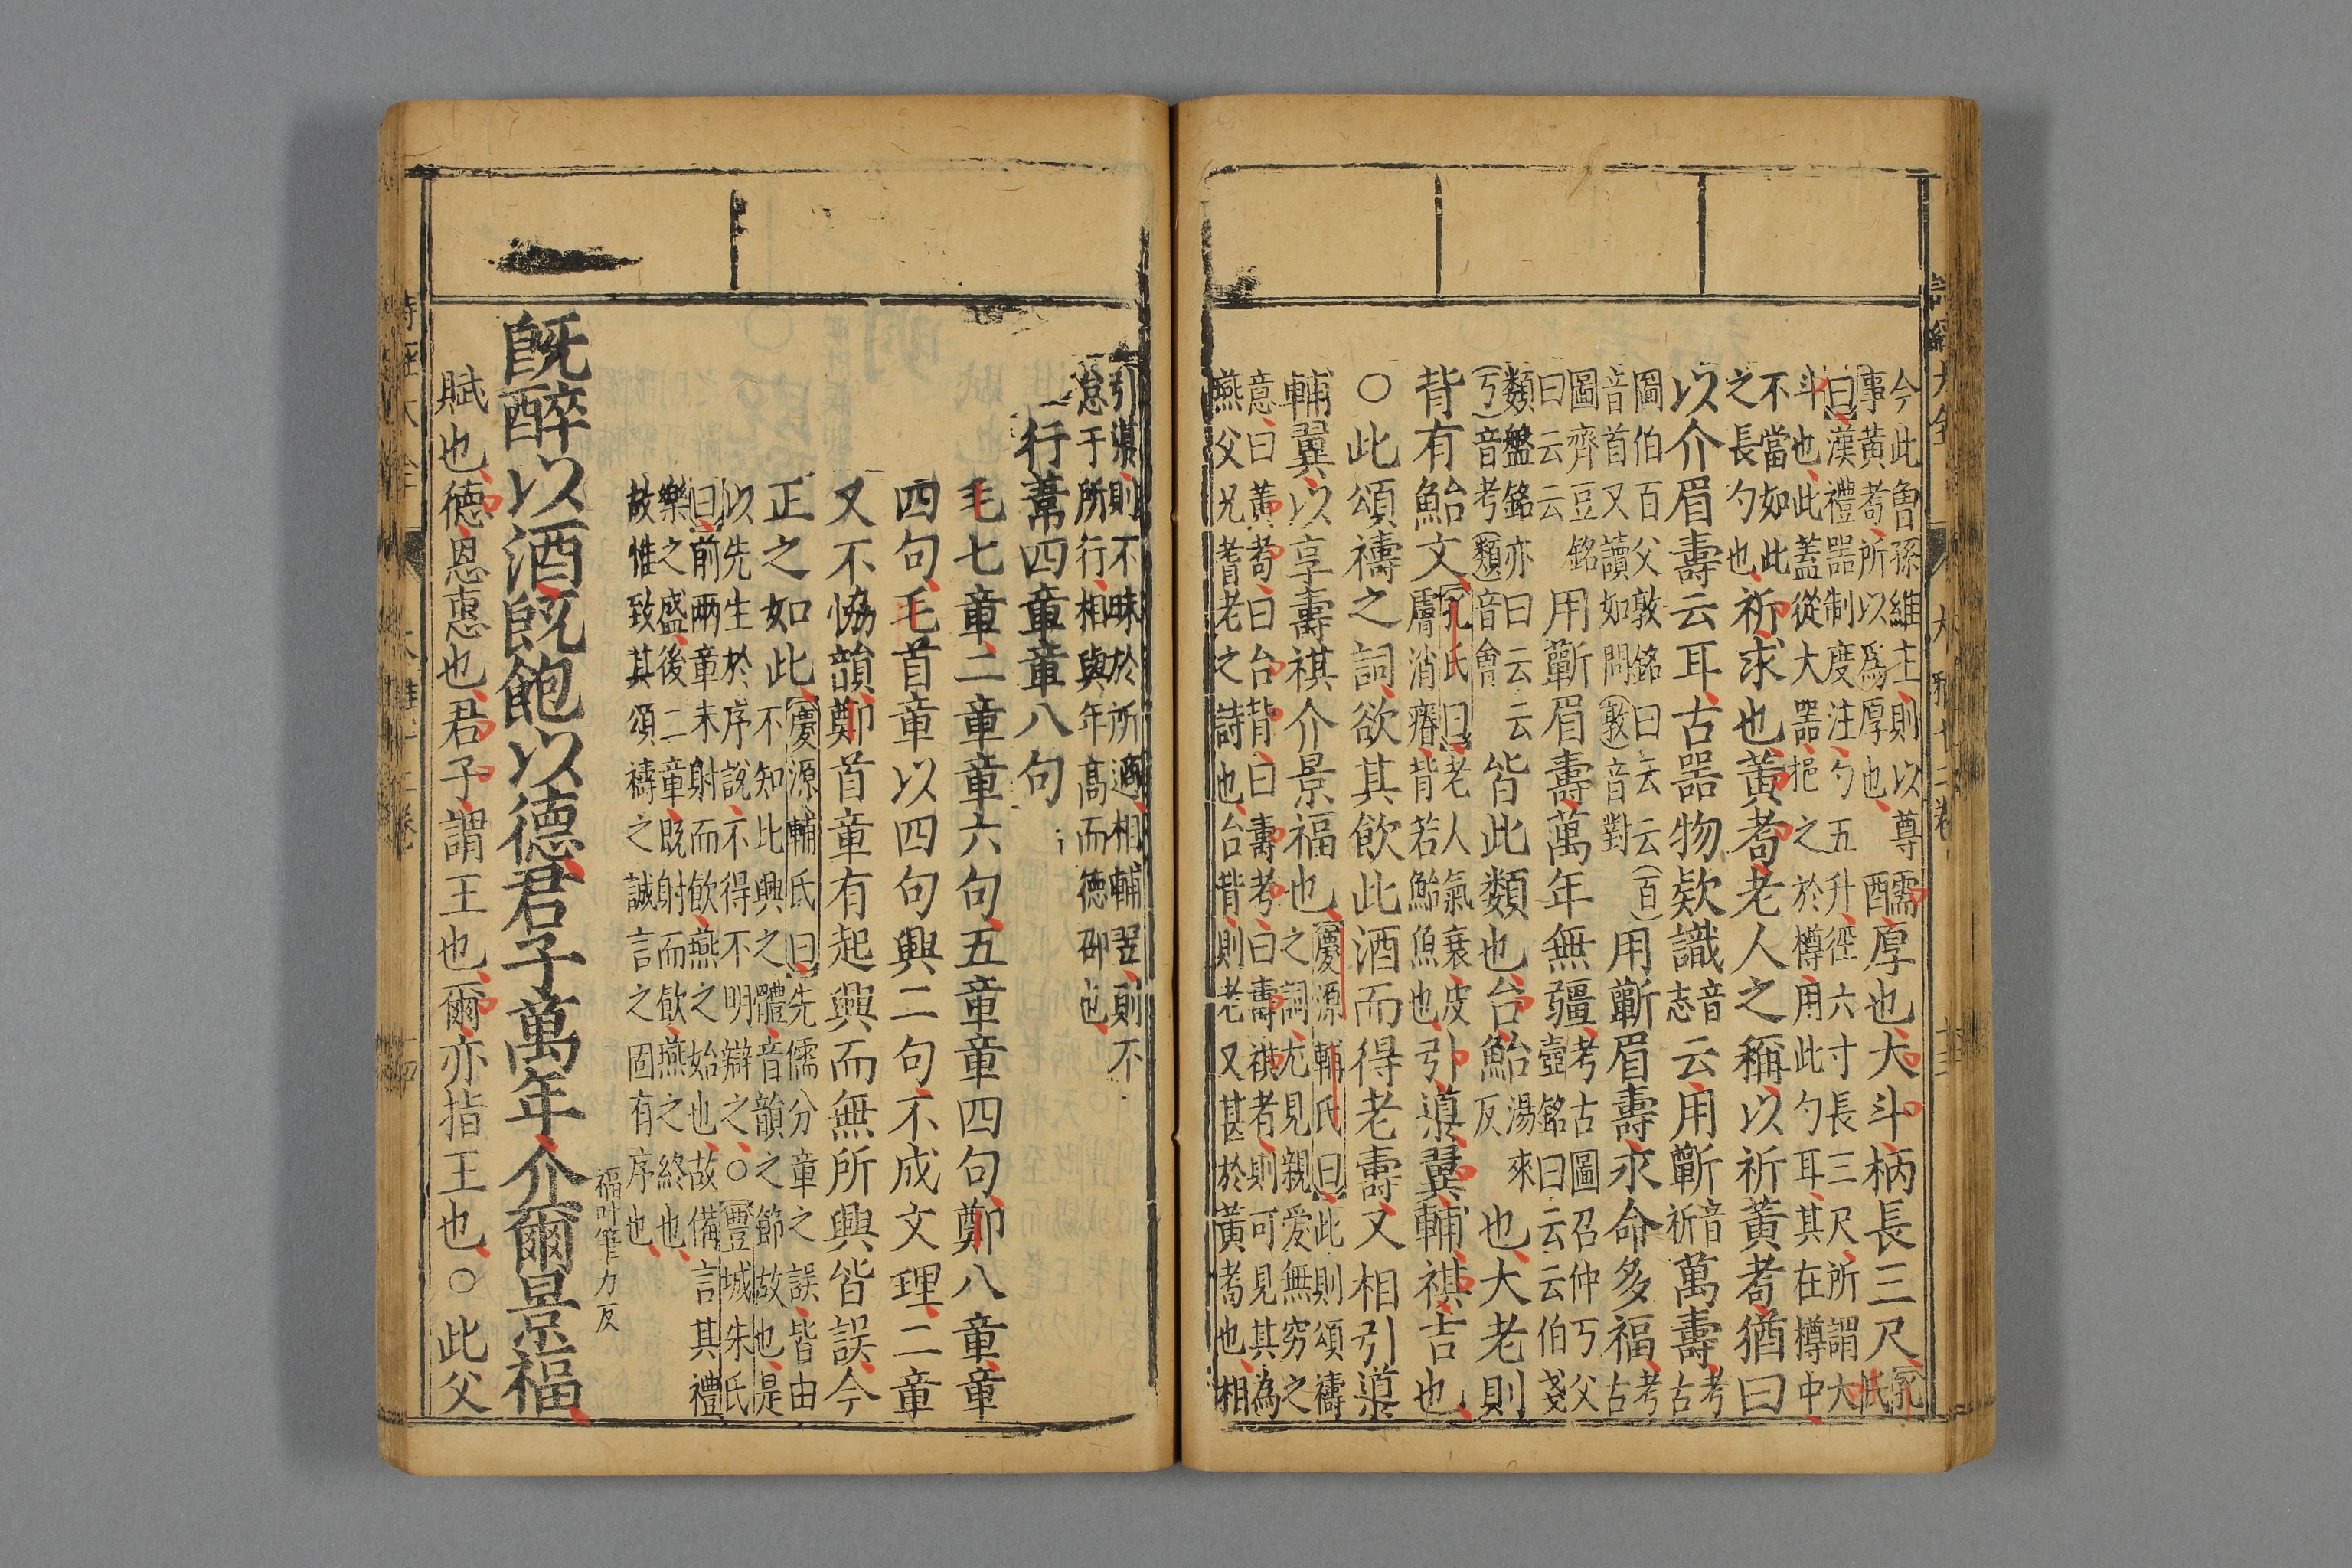 今此魯孫維主則以尊
事黃耇所以為厚也
醹厚也大斗柄長三尺
孔
氏
曰漢禮器制度注勺五升徑六寸長三尺所謂大
斗也此蓋從大器挹之於樽用此勺耳其在樽中
不當如此
之長勺也
祈求也黃耇老人之稱以祈黃耇猶曰
以介眉壽云耳古器物欵識音志云用蘄音祈萬壽考古
圖伯百父敦銘曰云云(百)
音首又讀如問(敦)音對
用蘄眉壽永命多福考古
圖齊豆銘
曰云云
用蘄眉壽萬年無疆
考古圖召仲丂父
壺銘曰云云伯戔
類盤銘亦曰云云
(丂)音考(類)音會
皆此類也台鮐湯來反也大老則
背有鮐文
孔氏曰老人氣衰皮
膚消瘠背若鮐魚也
引導翼輔祺吉也
○此頌禱之詞欲其飲此酒而得老壽又相引導
輔翼以享壽祺介景福也
慶源輔氏曰此則頌禱
之詞尤見親爱無穷之
意曰黃耇曰台背曰壽考曰壽祺者則可見其為
燕父兄耆老之詩也台背則老又甚於黃耇也相
引導則不昧於所適相輔翌則不
怠于所行相與年高而德卲也
行葦四章章八句
毛七章二章章六句五章章四句鄭八章章
四句毛首章以四句興二句不成文理二章
又不恊韻鄭首章有起興而無所興皆誤今
正之如此
慶源輔氏曰先儒分章之誤皆由
不知比興之體音韻之節故也是
以先生於序說不得不明辯之○豐城朱氏
曰前兩章未射而飲燕之始也故備言其禮
樂之盛後二章既射而飲燕之終也
故惟致其頌禱之誠言之固有序也
既醉以酒既飽以德君子萬年介爾景福
福叶筆力反
賦也德恩惠也君子謂王也爾亦指王也○此父